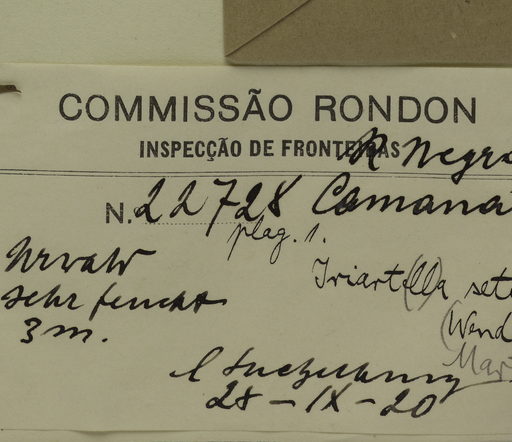 COMMISSÃO RONDON
INSPECÇÃO DE FRONTEIRAS
R Negro
N. 22728 Camana
plag. 1.
Urwald
sehr feucht
3 m.
Iriart(ell)a set
(Wend
Mar
28-IX-20